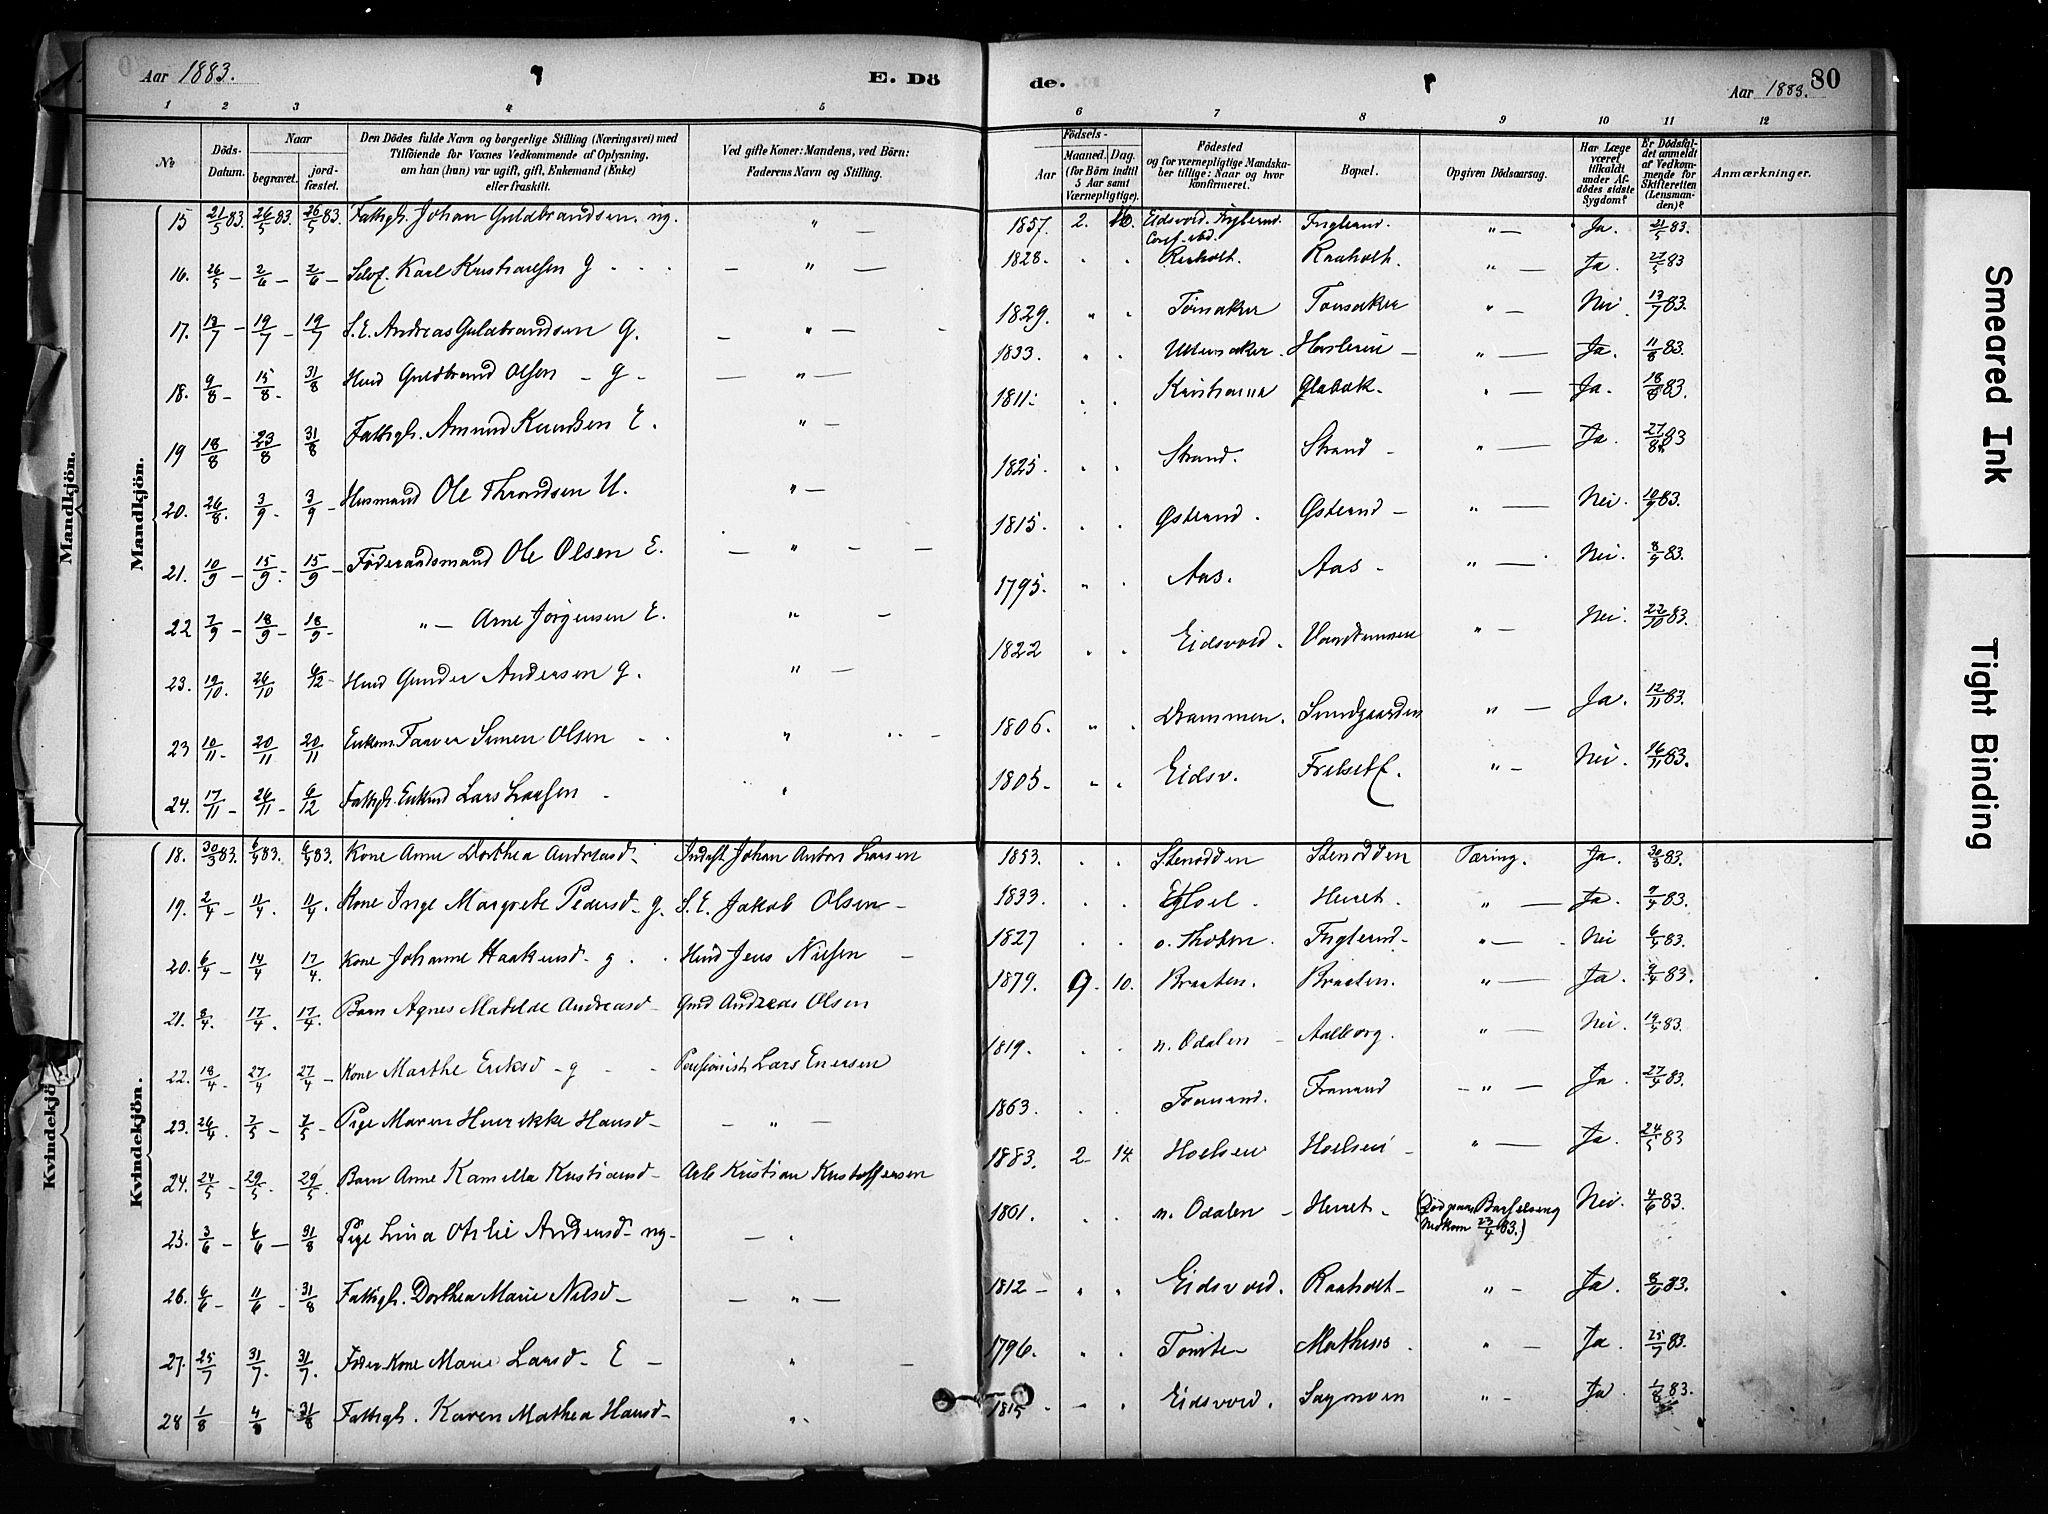 Aar 1883. E. Dö de. Aar 1883. 80
1 2 3 4 5 6 7 8 9 10 11 12
No Döds-Datum. Naar begravet. jord-fæstet.
Den Dödes fulde Navn og borgerlige Stilling (Næringsvei) med Tilföiende for Voxnes Vedkommende af Oplysning, om han (hun) var ugift, gift, Enkemand (Enke) eller fraskilt.
Ved gifte Koner: Mandens, ved Börn: Faderens Navn og Stilling.
Födsels- Aar Maaned. Dag. (for Börn indtil 5 Aar samt Værnepligtige).
Födested og for værnepligtige Mandskaber tillige: Naar og hvor konfirmeret.
Bopæl.
Opgiven Dödsaarsag.
Har Læge været tilkaldt under Afdödes sidste Sygdom?
Er Dödsfaldet anmeldt af Vedkommende for Skifteretten (Lensmanden)?
Anmærkninger.
Mandkjön.
Mandkjön.
15 21/5 83. 26/5 83. 26/5 83. Fattigl. Johan Guldbrandsen. ug. " — 1857. 2. 16. Eidsvold. Conf. ibd. " — Ja. 21/5 83.
16. 26/5 — 2/6 — 2/6 — Selvf. Karl Kristiansen g — " — 1828. Raaholt. Raaholt. " — Ja. 27/5 83
17. 13/7 — 19/7 — 19/7 S.E. Andreas Guldbrandsen g. — " — 1829. " Tønsaker Tønsaker " — Nei. 13/7 83.
18. 9/8 — 15/8 — 31/8 Hmd Guldbrand Olsen — g — — " — 1833. " Ullensaker. " — Ja. 11/8 83.
19 18/8 23/8 31/8 Fattigl. Amund Knudsen E. " — 1811. Kristiania Glabak. " — Ja. 18/8 83.
20. 26/8. 3/9 — 3/9 — Husmand Ole Throndsen U. " — 1825. Strand. Strand — " — Ja. 27/8 83
21. 10/9 — 15/9 — 15/9 — Føderaadsmand Ole Olsen E. — " — — 1815. Østrand. Østrand — " — Nei. 10/9 83.
22 7/9 — 18/9 — 18/9 — " — Arne Jørgensen E. " — 1795. " Aas. Aas — " — Nei. 8/9 83.
23. 19/10. 26/10 6/12 — Hmd Gunder Andersen g. " — 1822 Eidsvold. " — Nei. 22/10 83.
23 10/11 — 20/11 20/11 Enkem. Farver Simen Olsen " " — 1806. " Drammen. Sundgaarden " — Ja. 12/11 83.
24. 17/11 — 26/11 — 6/12 Fattigl. Enkmd Lars Larsen — " 1805. Eidsv. Trelset. " — Nei. 16/11 83.
Kvindekjö
Kvindekjön.
18. 30/3 83. 6/4 83. 6/4 83. Kone Anne Dorthea Andreasd — Indst. Johan Anton Larsen 1853. Stenodden Stenodden Tæring. Ja. 30/3 83.
19. 2/4 — 11/4. 11/4. Kone Inge Margrete Pedersd — g. S.E. Jakob Olsen — 1833. Herret. " — Ja. 7/4 83.
20. 6/4 — 14/4 17/4. Kone Johanne Haakensd — g. Hmd Jens Nielsen — 1827 " — Nei 6/4 83.
21. 8/4. 17/4. 17/4. Barn Agnes Matilde Andreasd — Gmd Andreas Olsen 1879. 9. 10. Braaten. Braaten. " — Ja. 9/4 83.
22. 18/4 27/4 27/4 — Kone Marthe Eriksd — g — Pensionist Lars Enersen 1819. n. Odalen — Aalborg. " — Nei. 19/4 83.
23. 26/4. 2/5 — 2/5 — Pige Maren Henrikke Hansd — — " — 1863. — " — Ja. 27/4 83.
24. 24/5 — 29/5. 29/5 Barn Anne Kamilla Kristiansd — Arb. Kristian Kristoffersen 1883. 2 14 " — Ja. 24/5 83
25. 3/6 — 6/6 — 31/8 Pige Lina Otilie Andersd — ug — — 1861. n. Odalen — Herret — (Død paa Barselseng Nedkom 23/4 83.) Nei. 4/6 83.
26. 6/6 — 11/6 — 31/8 Fattigl. Dorthea Marie Nilsd — — " — 1812 — " Eidsvold. Raaholt — " — Ja. 8/6 83.
27. 25/7 31/7. 31/7. Føder. Kone Marie Larsd — E — " — 1796. " " — Ja. 25/7 83.
28 1/8 4/8 31/8 Fattigl. Karen Mathea Hansd — " 1815 Eidsvold. Sagmoen " — Ja. 1/8 83.
Smeared Ink
Tight Binding